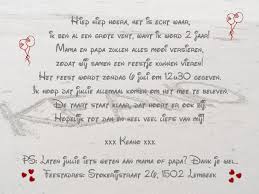 Hiep hiep hoera, het is echt waar,
ik ben al een grote vent, want ik word 2 jaar!
Mama en papa zullen alles mooi versieren,
zodat wij samen een feestje kunnen vieren!
Het feest wordt zondag 6 juli om 12u30 gegeven.
Ik hoop dat jullie allemaal komen om het mee te beleven.
De taart staat klaar, dat hoort er ook bij
Hopelijk tot dan en heel veel liefs van mij!
xxx Keano xxx
PS: Laten jullie iets weten aan mama of papa? Dank je wel...
Feestadres: Stokerijstraat 26, 1502 Lembeek